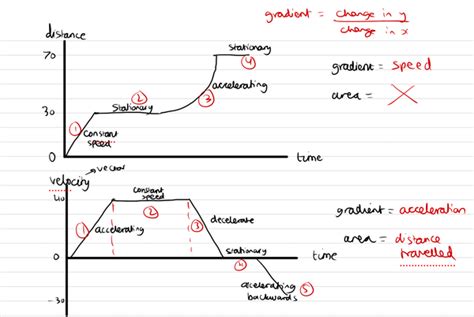 gradient = change in y
change in x
distance
70
stationary
④
gradient = speed
accelerating
③
area = X
②
30
stationary
①
constant
speed
0
time
vector
velocity
40
constant
speed
②
gradient = acceleration
①
accelerating
③
decelerate
area = distance
travelled
stationary
0
time
④
accelerating
backwards
⑤
-30